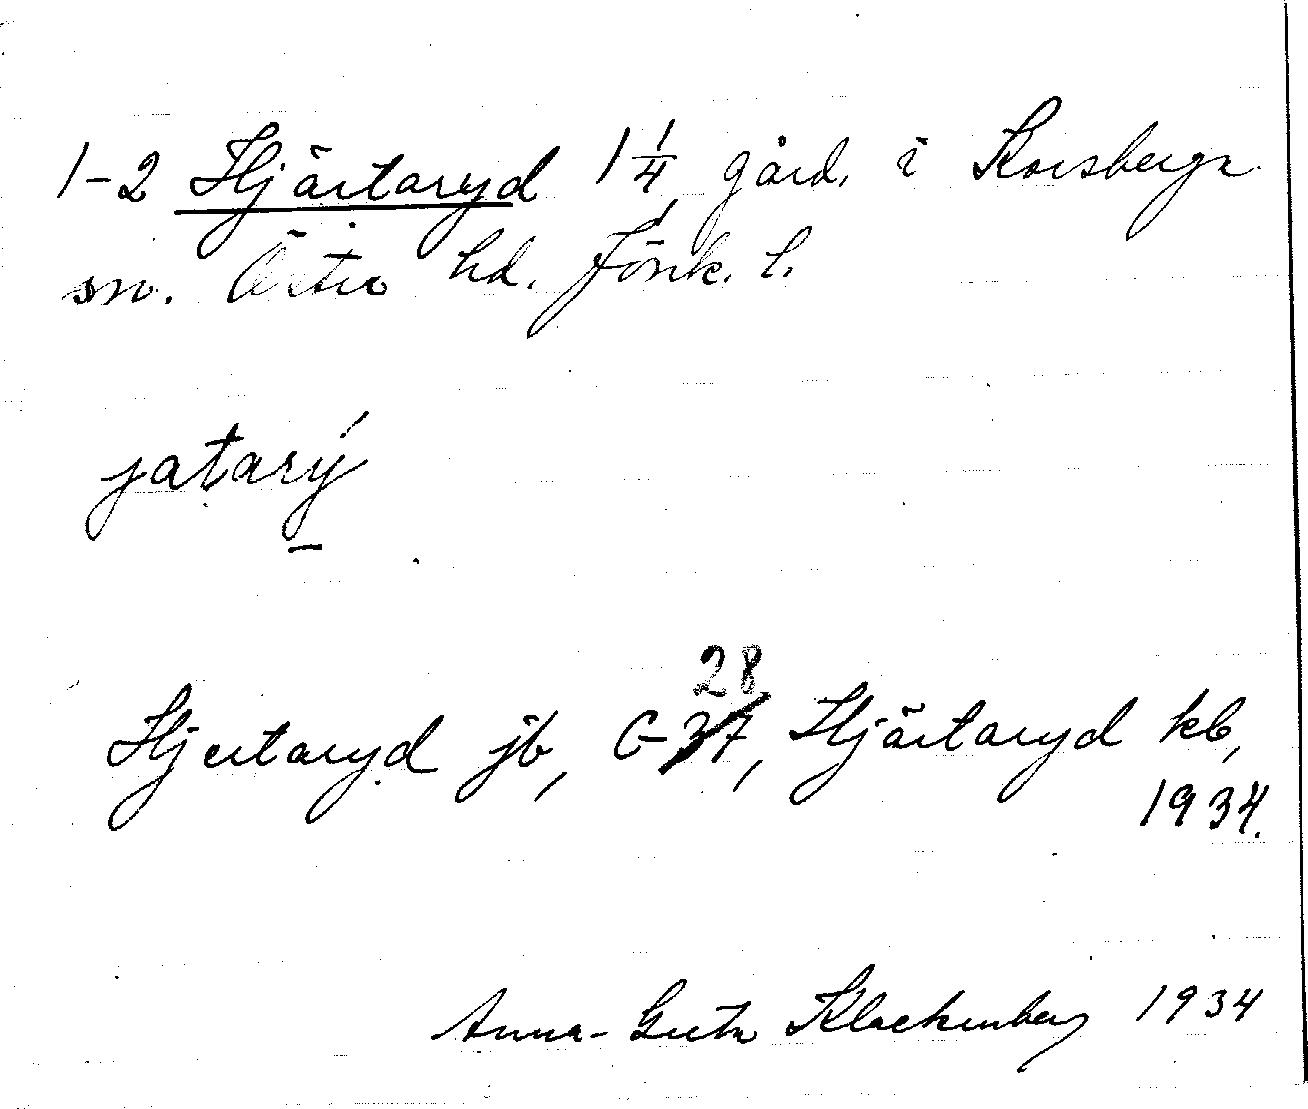 1-2 Hjärtaryd 1 1/4 gård. i Korsberga
sn. Östra hd. Jönk. l.
jatarý
Hjertaryd jb, C-37, 28 Hjärtaryd kb,
1934.
Anna-Greta Klackenberg 1934